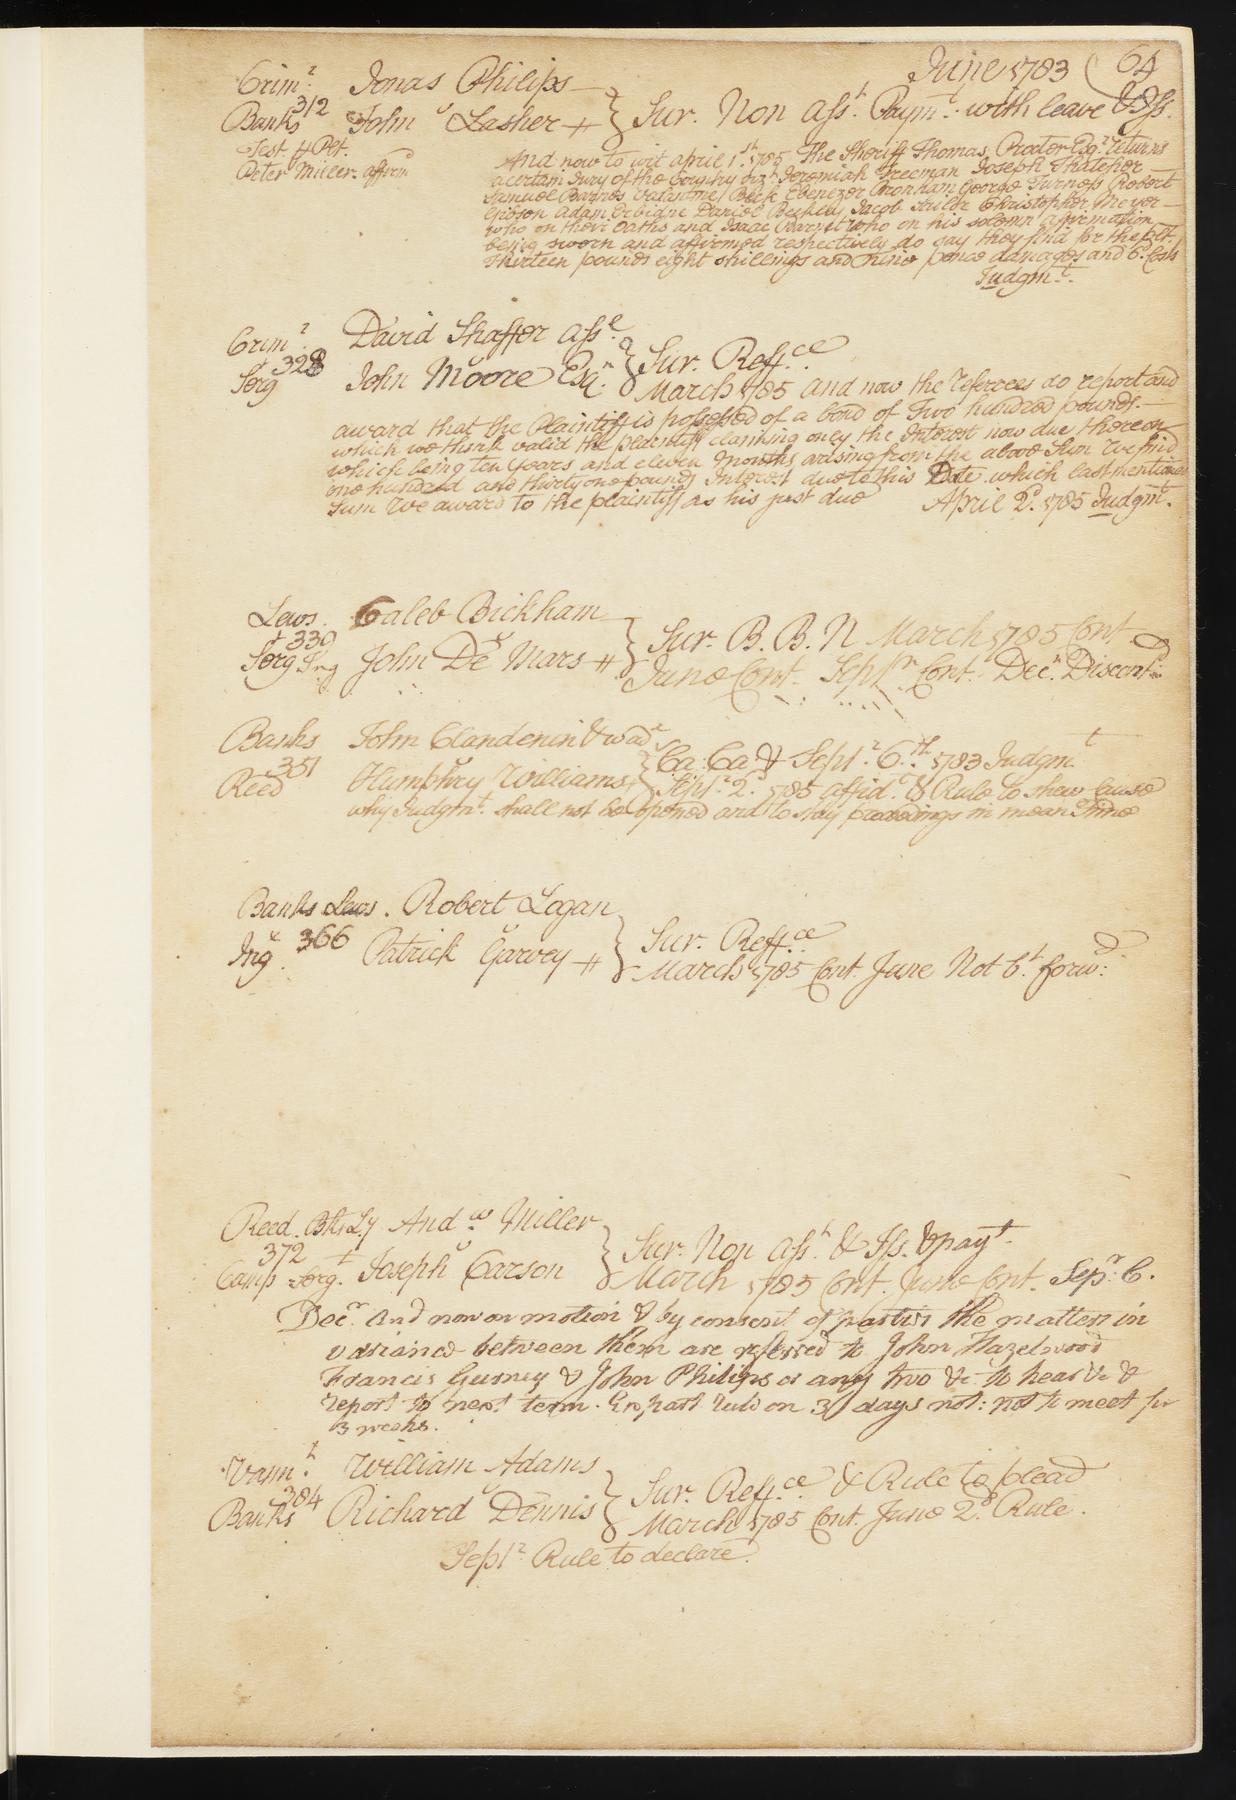 June 1783 (64
Crimr. Jonas Philips
312
Banks v John Lasher Sur. Non Asst. Paymt. with leave & Iss.
Test. pr Plt.
Peter Miller affirmd
And now to wit april 1st. 1785 The Sheriff Thomas Procter Esqr. returns
a certain Jury of the Country vizt Jeremiah Freeman Joseph Thatcher
Samuel Barnes Valantine Beck Ebenezer Bronham George Furness Robert
Gibson Adam Daniel Jacob Christopher Meyer
who on their Oaths and Isaac Barnet who on his solemn affirmation
being sworn and affirmed respectively do say they find for the Plt.
Thirteen pounds eight shillings and Nine pence damages and 6d. Costs
Judgmt.
Crimr. David Shaffer Asse
328
Serg v John Moore Esqr. Sur. Reffce.
March 1785 and now the referrees do report and
award that the Plaintiff is possessed of a bond of Two hundred pounds.
which we think valid the plaintiff claiming only the Interest now due thereon
which being ten Years and eleven Months arising from the above Sum We find
one hundred and thirty one pounds Interest due to this Date which last mentioned
Sum We award to the plaintiff as his just due April 2d. 1785 Judgmt.
Lews. Caleb Bickham
330
Sergt Ing v John De Mars Sur. B. B. N March 1785 Cont
June Cont. Septr Cont. Decr. Discontd.
Banks John Clandenin & wad
351
Reed v Humphry Williams Ca. Ca. & Septr. 6th. 1783 Judgmt
Septr. 2d. 1785 affid. & Rule to shew Cause
why Judgmt. shall not be opened and to stay proceedings in mean Time
Banks Lews. Robert Logan
Ing. 366 v Patrick Garvey Sur. Reffce.
March 1785 Cont. June Not bt. forwd:
Reed. Andw. Miller
372
Camp Sergt. v Joseph Carson Sur. Non Asst. & Iss. & payt.
March 1785 Cont. June Cont. Sepr. C.
Decr. And now on motion & by consent of parties the matters in
variance between them are referred to John Hazelwood
Francis Gurney & John Philips or any two &c to hear &c &
report to next term. Ex part rule on 3 days not: not to meet for
3 weeks.
Vannt. William Adams
384
Banks v Richard Dennis Sur. Reffce. & Rule to plead
March 1785 Cont. June 2d. Rule.
Septr. Rule to declare.